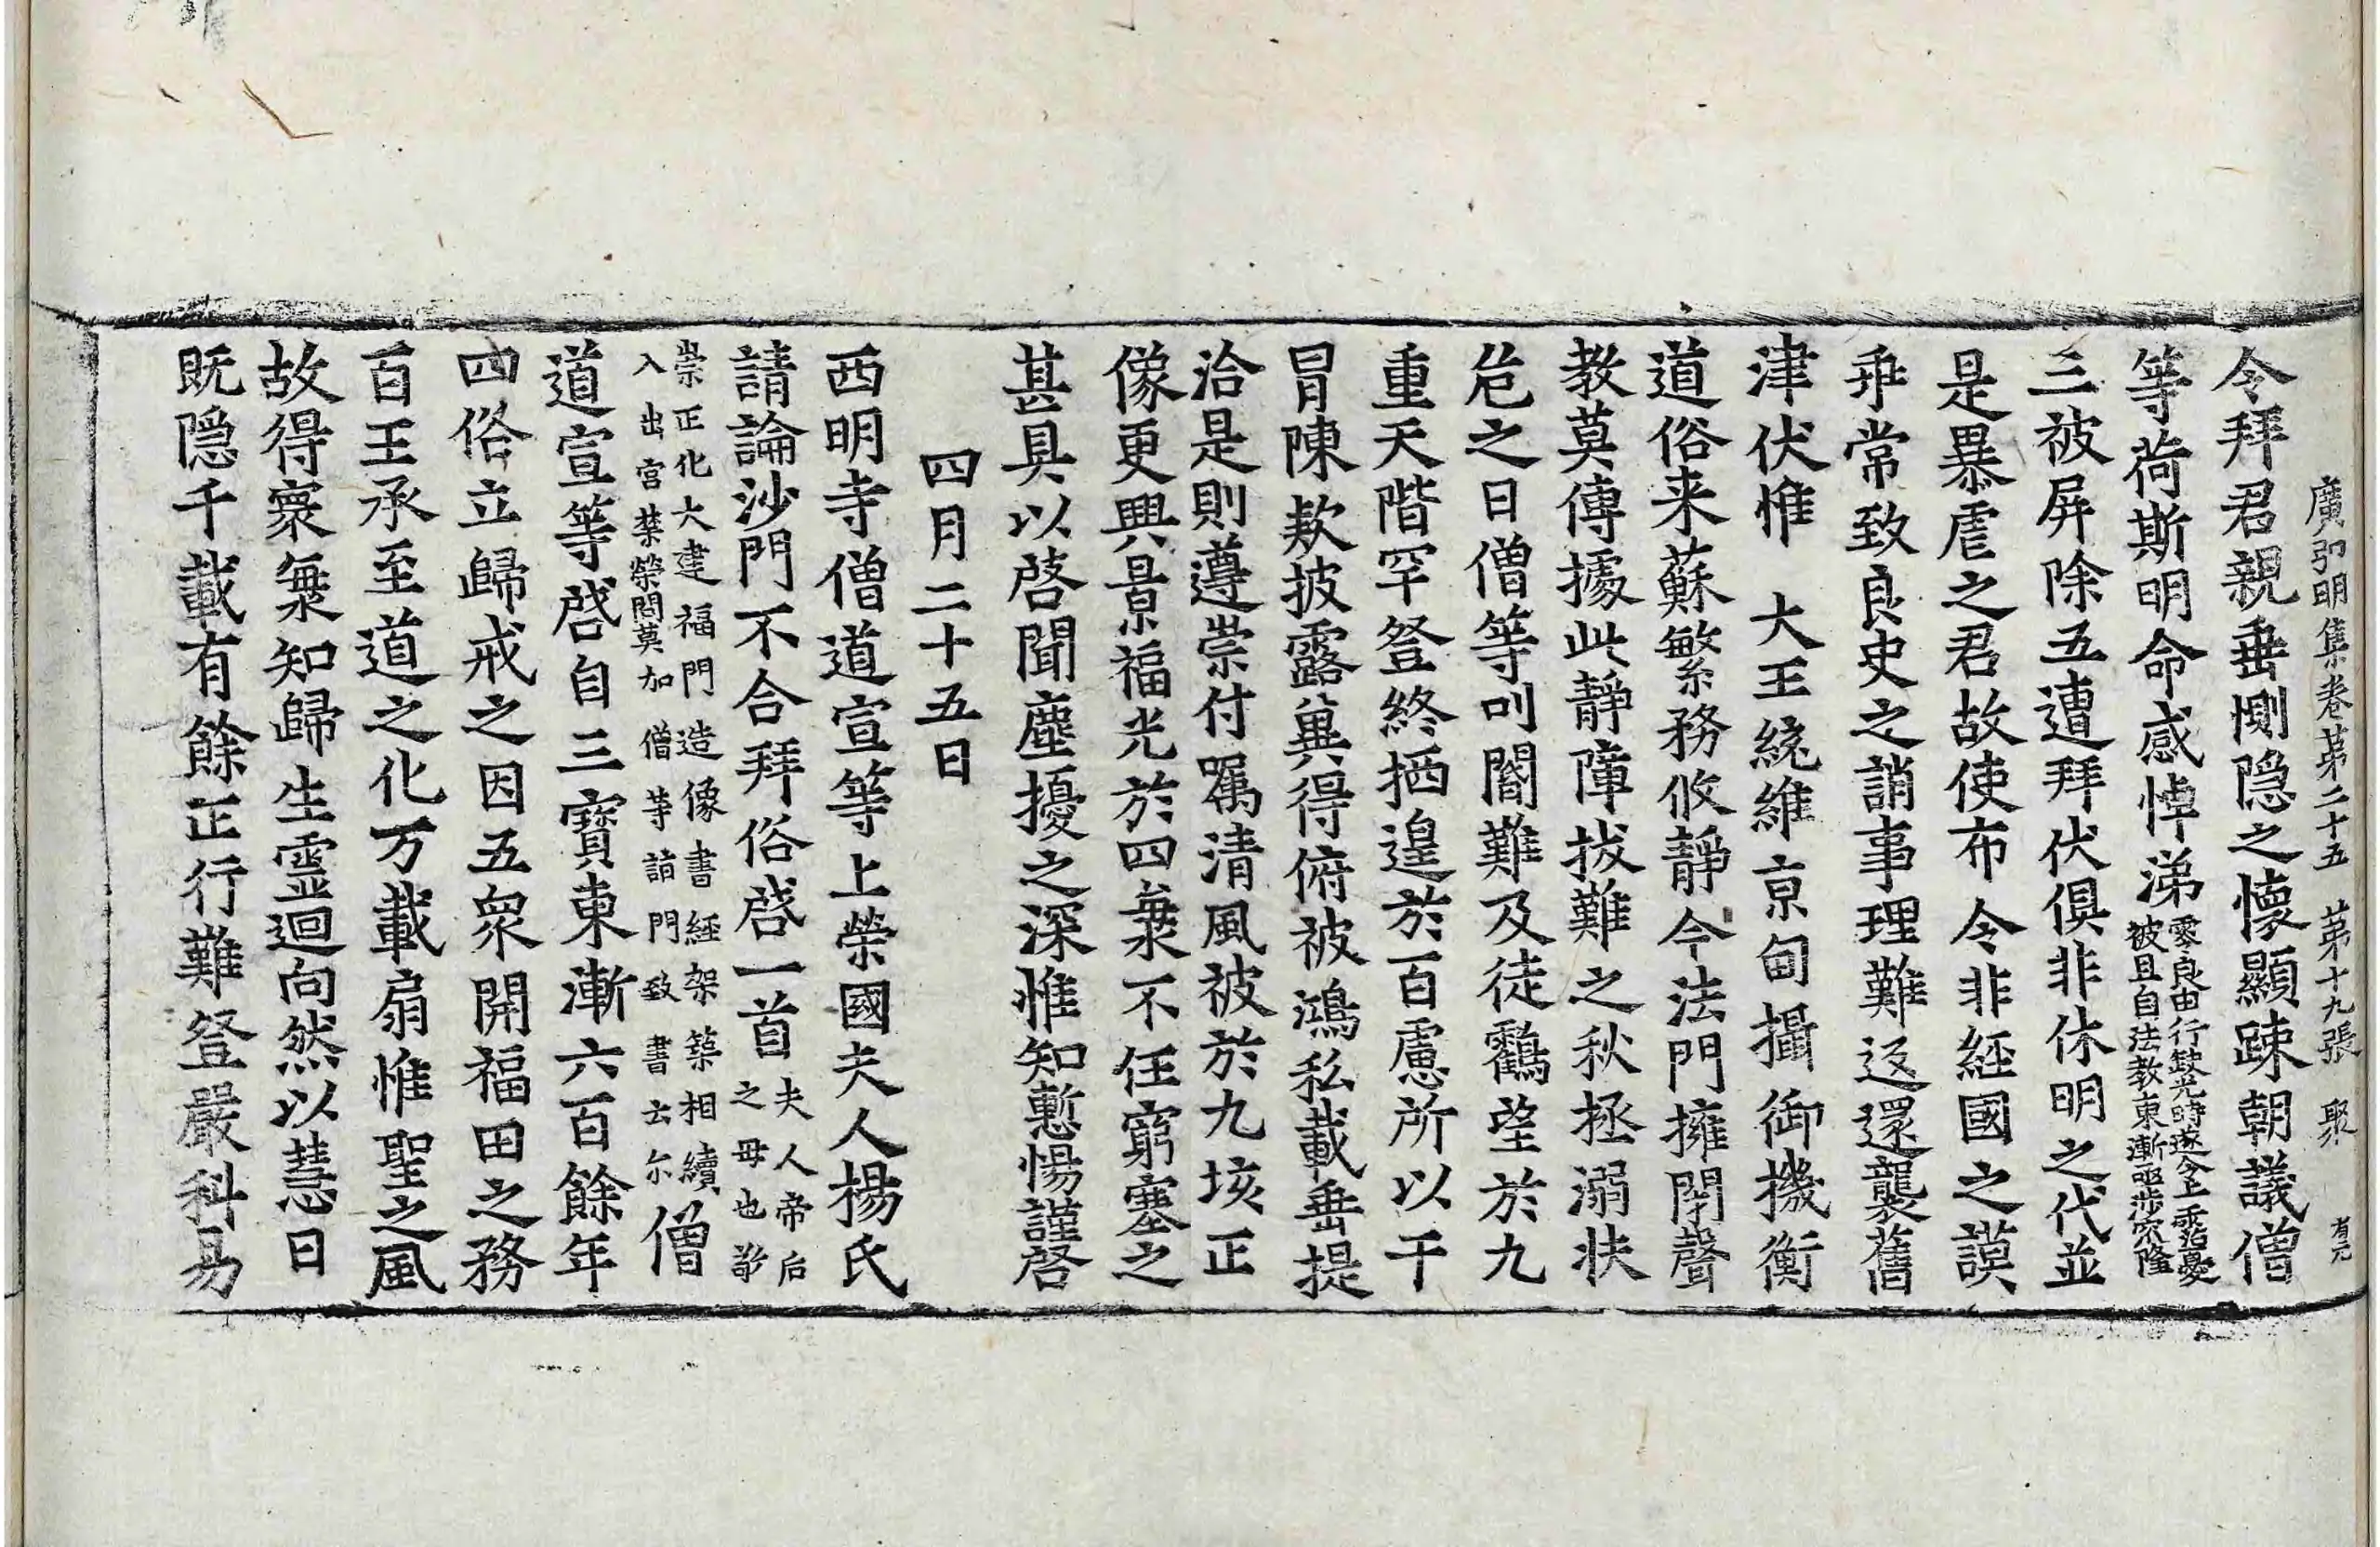 廣弘明集卷第二十五　第十九張　聚　有元
令拜君親垂惻隱之懷顯踈朝議僧
等荷斯明命感悼涕零良由行缺光時遂令上乖
被且自法教東漸亟涉窊隆
三被屏除五遭拜伏俱非休明之代並
是暴虐之君故使布令非經國之謨
乖常致良史之誚事理難返還襲舊
津伏惟　大王統維京甸攝御機衡
道俗来蘇繁務攸靜今法門擁閇聲
教莫傳據此靜障拔難之秋拯溺扶
危之日僧等叫閽難及徒鸛望於九
重天階罕登終栖遑於百慮所以干
冒陳欵披露兾得俯被鴻私載垂提
洽是則遵崇付囑清風被於九垓正
像更興景福光於四衆不任窮塞之
甚具以啓聞塵擾之深惟知慙惕謹啓
四月二十五日
西明寺僧道宣等上榮國夫人楊氏
請論沙門不合拜俗啓一首夫人帝后
之母也敬
崇正化大建福門造像書經架築相續
入出宮禁榮問莫加僧等詣門致書云尒
僧
道宣等啓自三寶東漸六百餘年
四俗立歸戒之因五衆開福田之務
百王承至道之化万載扇惟聖之風
故得寰衆知歸生靈迴向然以慧日
既隱千載有餘正行難登嚴科易